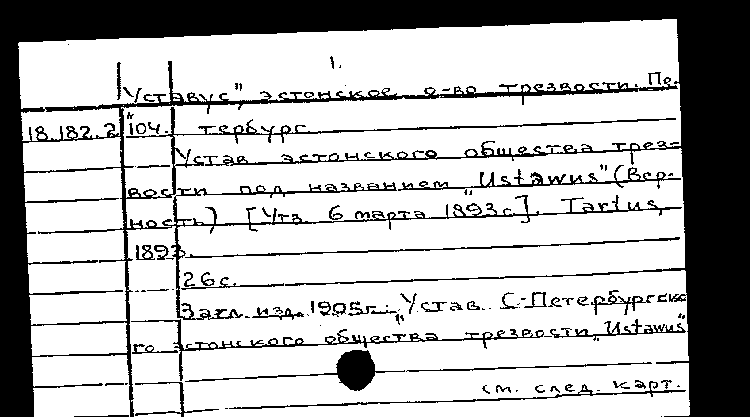 1.
Уставус", эстонское о-во трезвости. Пе-
18.182.2 "104. тербург
Устав эстонского общества трез=
вости под названием „Ustawus" (Вер-
ность) [Утв. 6 марта 1893г.]. Tartus,
1893.
26с.
Загл. изд. 1905г.: „Устав С-Петербургско
го эстонского общества трезвости „Ustawus"
см. след. карт.